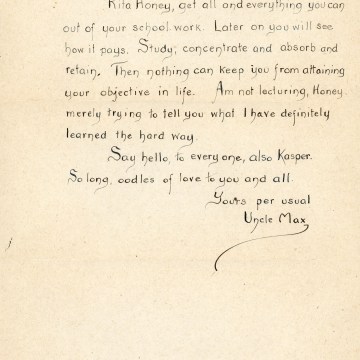 Rita Honey, get all and everything you can
out of your school work. Later on you will see
how it pays. Study; concentrate and absorb and
retain. Then nothing can keep you from attaining
your objective in life. Am not lecturing, Honey
merely trying to tell you what I have definitely
learned the hard way.
Say hello, to every one, also Kasper.
So long, oodles of love to you and all.
Yours per usual
Uncle Max